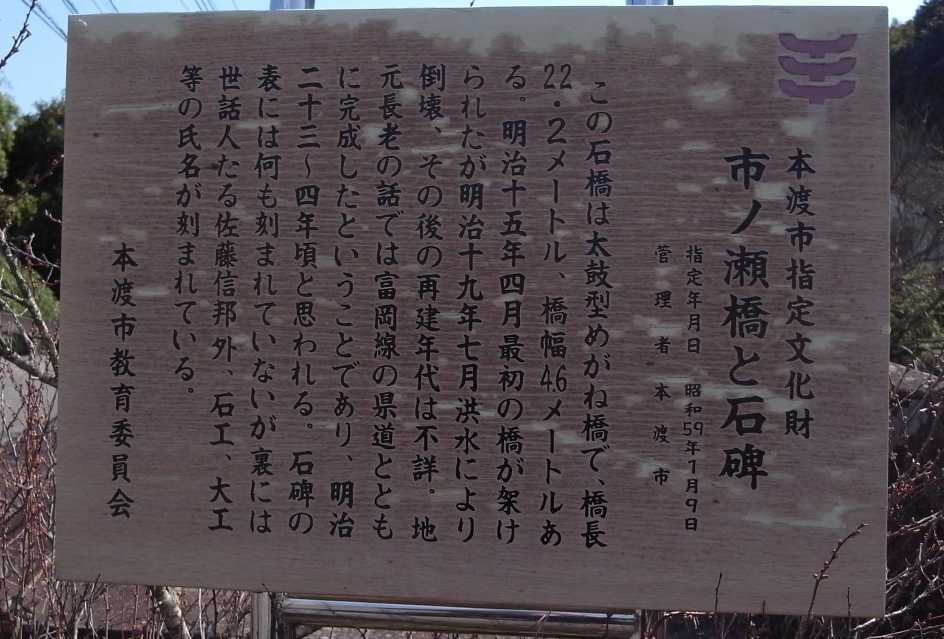 本渡市指定文化財
市ノ瀬橋と石碑
指定年月日　昭和59年1月9日
管理者　本渡市
この石橋は太鼓型めがね橋で、橋長
22．2メートル、橋幅4.6メートルあ
る。明治十五年四月最初の橋が架け
られたが明治十九年七月洪水により
倒壊、その後の再建年代は不詳。地
元長老の話では富岡線の県道ととも
に完成したということであり、明治
二十三～四年頃と思われる。石碑の
表には何も刻まれていないが裏には
世話人たる佐藤信邦外、石工、大工
等の氏名が刻まれている。
本渡市教育委員会